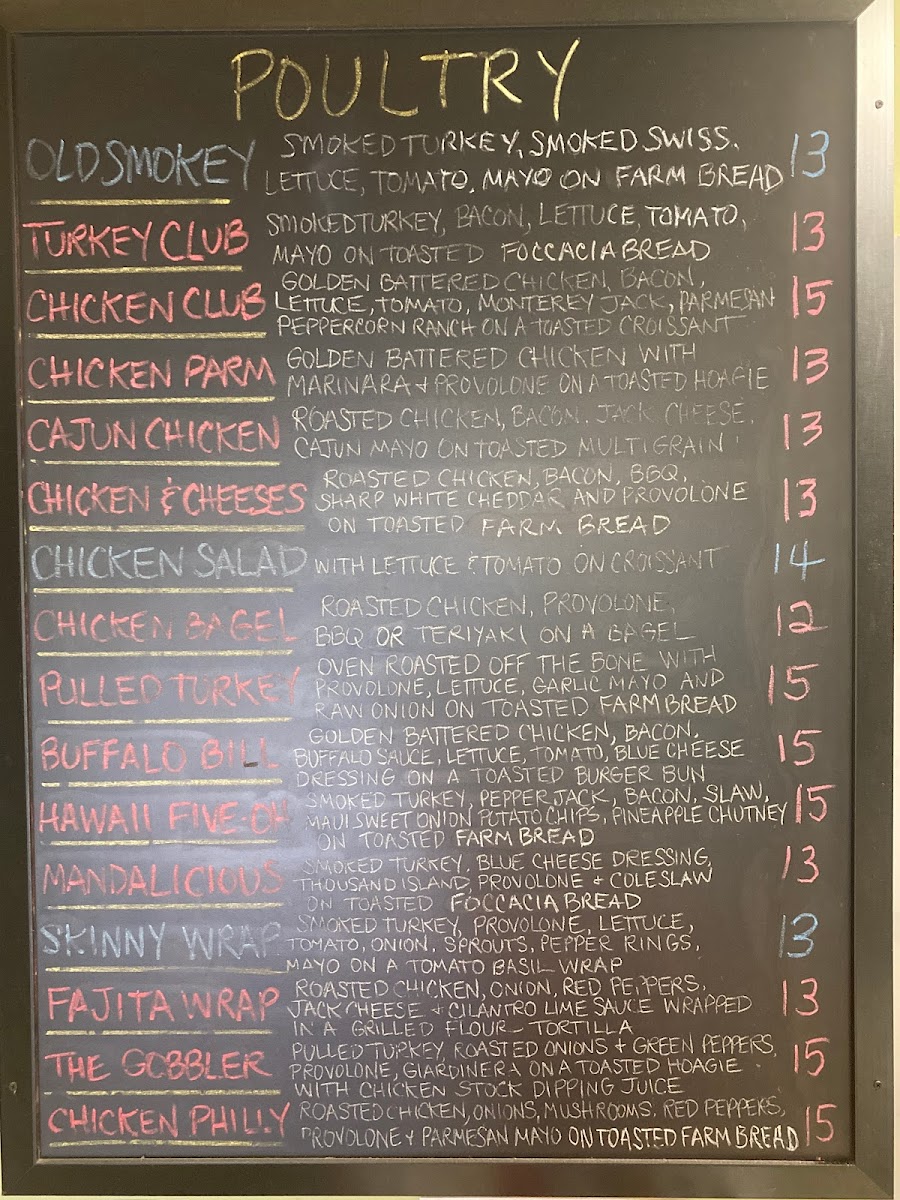 POULTRY
OLD SMOKEY SMOKED TURKEY, SMOKED SWISS. 13
LETTUCE, TOMATO, MAYO ON FARM BREAD
TURKEY CLUB SMOKED TURKEY, BACON, LETTUCE, TOMATO, 13
MAYO ON TOASTED FOCCACIA BREAD
CHICKEN CLUB GOLDEN BATTERED CHICKEN, BACON, 15
LETTUCE, TOMATO, MONTEREY JACK, PARMESAN
PEPPERCORN RANCH ON A TOASTED CROISSANT
CHICKEN PARM GOLDEN BATTERED CHICKEN WITH 13
MARINARA + PROVOLONE ON A TOASTED HOAGIE
CAJUN CHICKEN ROASTED CHICKEN, BACON. JACK CHEESE. 13
CAJUN MAYO ON TOASTED MULTIGRAIN
CHICKEN & CHEESES ROASTED CHICKEN, BACON, BBQ, 13
SHARP WHITE CHEDDAR AND PROVOLONE
ON TOASTED FARM BREAD
CHICKEN SALAD WITH LETTUCE & TOMATO ON CROISSANT 14
CHICKEN BAGEL ROASTED CHICKEN, PROVOLONE, 12
BBQ OR TERIYAKI ON A BAGEL
PULLED TURKEY OVEN ROASTED OFF THE BONE WITH 15
PROVOLONE, LETTUCE, GARLIC MAYO AND
RAW ONION ON TOASTED FARM BREAD
BUFFALO BILL GOLDEN BATTERED CHICKEN, BACON, 15
BUFFALO SAUCE, LETTUCE, TOMATO, BLUE CHEESE
DRESSING ON A TOASTED BURGER BUN
HAWAII FIVE-OH SMOKED TURKEY, PEPPER JACK, BACON, SLAW, 15
MAUI SWEET ONION POTATO CHIPS, PINEAPPLE CHUTNEY
ON TOASTED FARM BREAD
MANDALICIOUS SMOKED TURKEY, BLUE CHEESE DRESSING, 13
THOUSAND ISLAND, PROVOLONE + COLESLAW
ON TOASTED FOCCACIA BREAD
SKINNY WRAP SMOKED TURKEY, PROVOLONE, LETTUCE, 13
TOMATO, ONION, SPROUTS, PEPPER RINGS,
MAYO ON A TOMATO BASIL WRAP
FAJITA WRAP ROASTED CHICKEN, ONION, RED PEPPERS, 13
JACK CHEESE + CILANTRO LIME SAUCE WRAPPED
IN A GRILLED FLOUR TORTILLA
THE GOBBLER PULLED TURKEY, ROASTED ONIONS + GREEN PEPPERS, 15
PROVOLONE, GIARDINERA ON A TOASTED HOAGIE
WITH CHICKEN STOCK DIPPING JUICE
CHICKEN PHILLY ROASTED CHICKEN, ONIONS, MUSHROOMS. RED PEPPERS, 15
PROVOLONE + PARMESAN MAYO ON TOASTED FARM BREAD